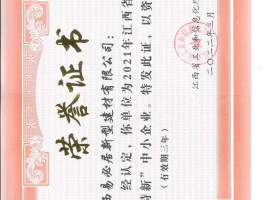 荣誉证书
易必居新型建材有限公司：
经认定，你单位为2021年江西省
特新”中小企业。特发此证，以资
（有效期三年）
江西省工业和信息化厅
二〇二二年三月